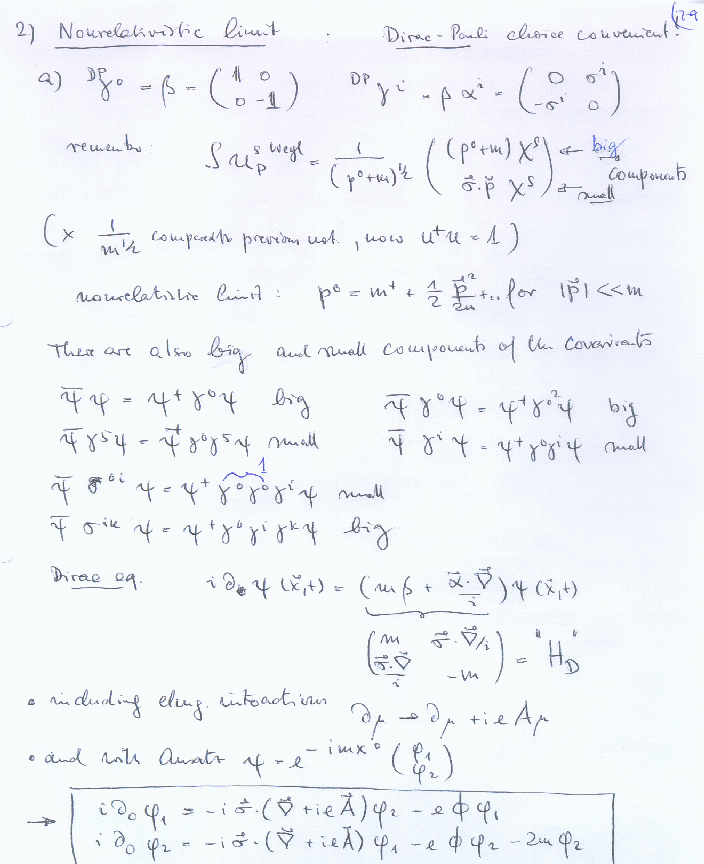 (12.9
2) Nonrelativistic limit . Dirac-Pauli choice convenient!
a) ᴰᴾγ⁰ = β = (1 0 ; 0 -1) ᴰᴾγⁱ = β αⁱ = (0 σⁱ ; -σⁱ 0)
remember: S u_p^{s Weyl} = 1/(p⁰+m)^{1/2} ((p⁰+m) χˢ ; σ⃗.p⃗ χˢ) ← big components ← small
(× 1/m^{1/2} compared to previous not., now u⁺u = 1)
nonrelativistic limit: p⁰ = m + 1/2 p⃗²/2m +.. for |p⃗| << m
There are also big and small components of the covariants
ψ̄ψ = ψ⁺γ⁰ψ big ψ̄γ⁰ψ = ψ⁺γ⁰²ψ big
ψ̄γ⁵ψ = ψ⁺γ⁰γ⁵ψ small ψ̄γⁱψ = ψ⁺γ⁰γⁱψ small
1
ψ̄ σ⁰ⁱ ψ = ψ⁺ γ⁰γ⁰γⁱψ small
ψ̄ σⁱᵏ ψ = ψ⁺γ⁰γⁱγᵏψ big
Dirac eq. i∂₀ψ(x⃗,t) = (mβ + α⃗.∇⃗/i)ψ(x⃗,t)
(m σ⃗.∇⃗/i ; σ⃗.∇⃗/i -m) = "H_D"
• including elmg. interactions ∂μ → ∂μ + ieAμ
• and with Ansatz ψ = e^{-imx⁰} (φ₁ ; φ₂)
→ i∂₀φ₁ = -iσ⃗.(∇⃗ + ieA⃗)φ₂ - eϕφ₁
i∂₀φ₂ = -iσ⃗.(∇⃗ + ieA⃗)φ₁ - eϕφ₂ - 2mφ₂